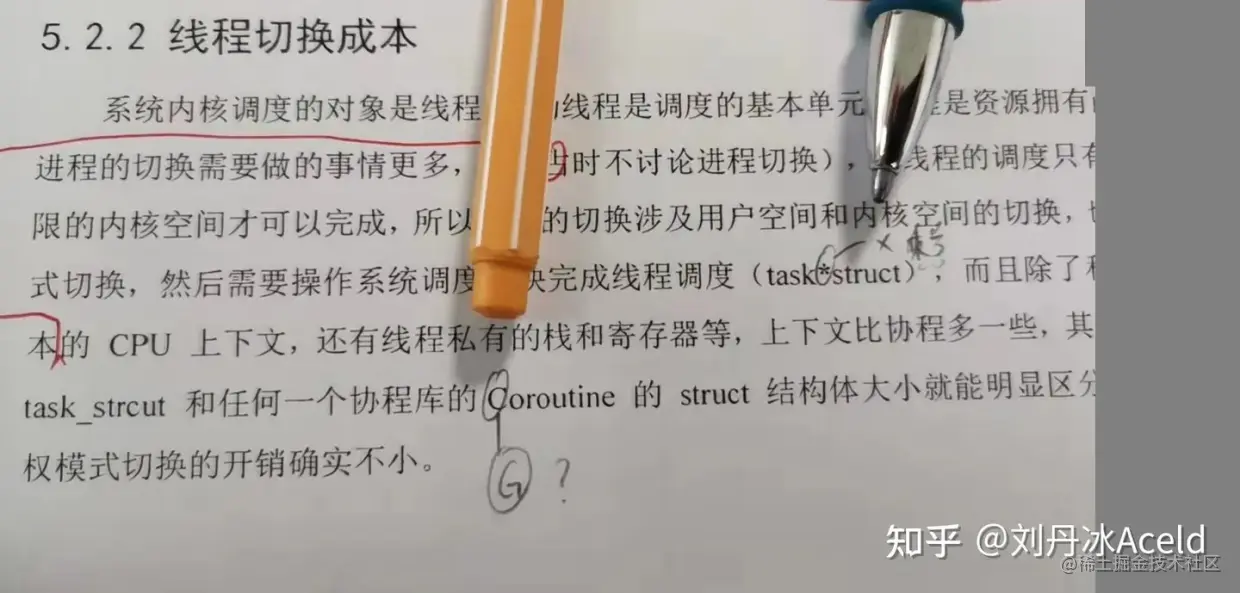 5.2.2 线程切换成本
系统内核调度的对象是线程 线程是调度的基本单元 是资源拥有
进程的切换需要做的事情更多, 时不讨论进程切换), 线程的调度只有
限的内核空间才可以完成, 所以 的切换涉及用户空间和内核空间的切换,
式切换, 然后需要操作系统调度 块完成线程调度 (task*struct), 而且除了
×
本的 CPU 上下文, 还有线程私有的栈和寄存器等, 上下文比协程多一些, 其
task_strcut 和任何一个协程库的 Coroutine 的 struct 结构体大小就能明显区分
权模式切换的开销确实不小。
G ?
知乎 @刘丹冰Aceld
@稀土掘金技术社区